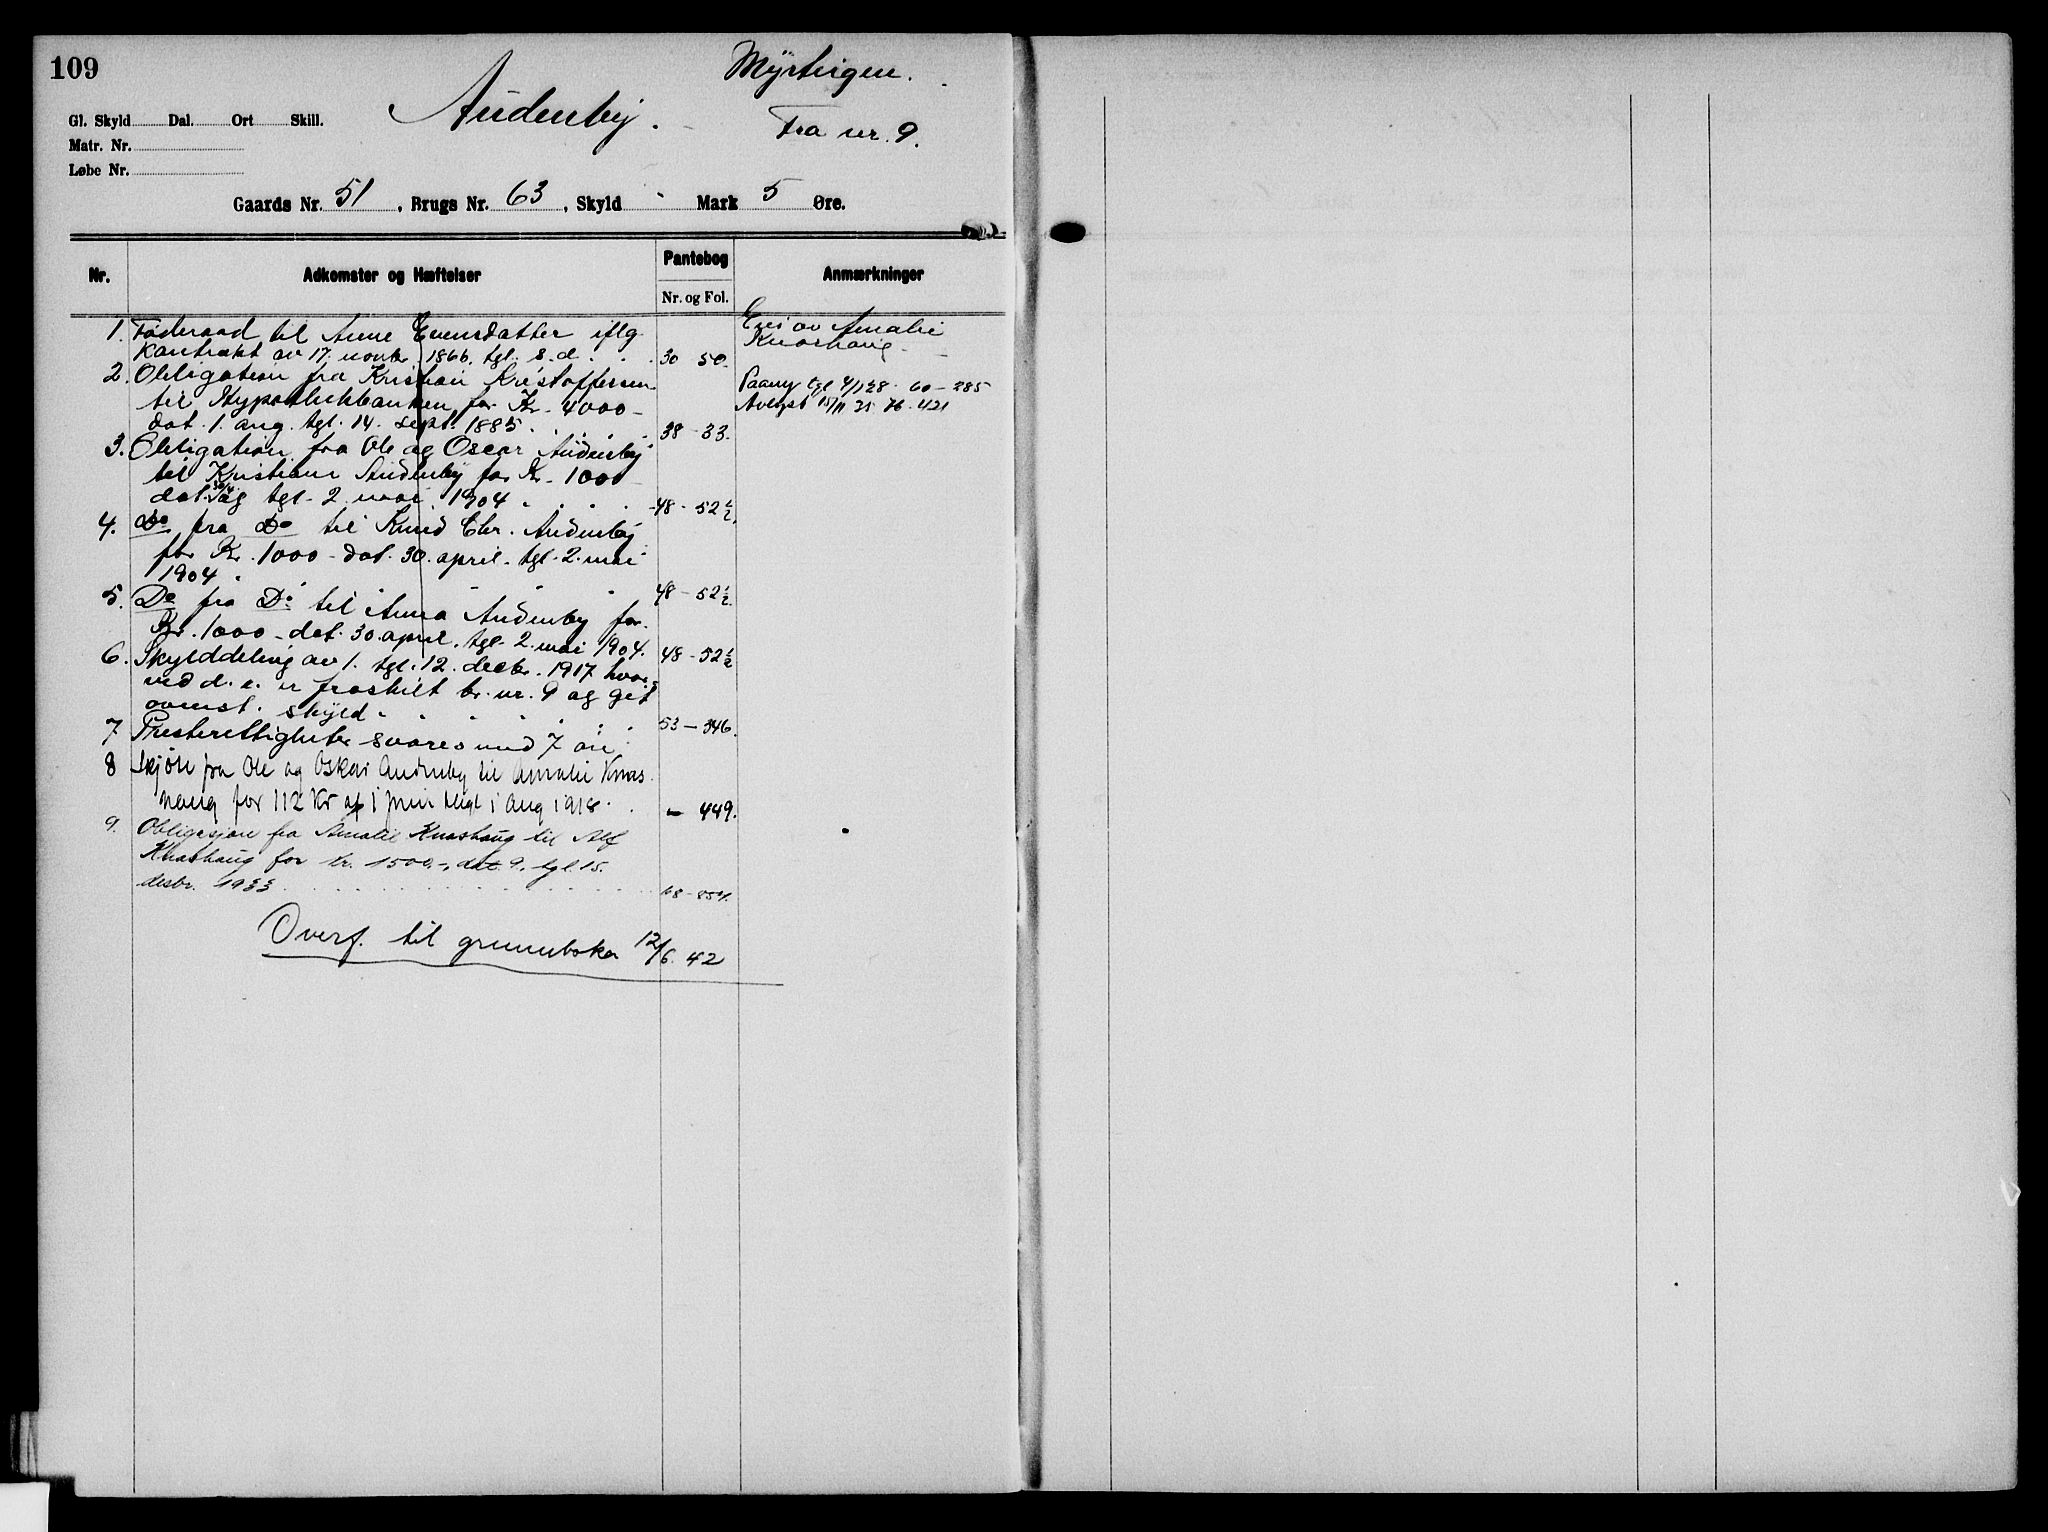 109
Myrteigen.
Audenby.
Fra nr. 9.
Gl. Skyld Dal. Ort Skill.
Matr. Nr.
Løbe Nr.
Gaards Nr. 51, Brugs Nr. 63, Skyld - Mark 5 Øre.
Nr. Adkomster og Hæftelser Pantebog Anmærkninger
Nr. og Fol.
1. Føderaad til Anne Evensdatter iflg.
kontrakt av 17. novbr. 1866. tgl. s. d. 30 50.
Eies av Amalie
Knashaug
2. Obligation fra Kristian Kristoffersen
til Hypothekbanken for Kr. 4000-
dat. 1. aug. tgl. 14. sept. 1885. 38 - 33.
Paany tgl 4/1 28. 60 - 285
Avlyst 15/11 35 76. 421
3. Obligation fra Ole og Oscar Audenby
til Kristiane Audenby for Kr. 1000
dat. 30/4 og tgl. 2 mai 1904 48 - 52½.
4. Do fra Do til Knud Chr. Audenby
for Kr. 1000 - dat. 30. april. tgl. 2. mai
1904 48 - 52½.
5. Do fra Do til Anna Audenby for
Kr. 1000 - dat. 30 april. tgl. 2. mai 1904. 48 - 52½
6. Skylddeling av 1. tgl. 12. decbr. 1917 hvor-
ved d. e. er fraskilt br. nr. 9 og git
ovenst. skyld. 53 - 346.
7 Presterettigheter svares med 7 øre
8 Skjøte fra Ole og Oskar Audenby til Amalie Knas
haug for 112 Kr af 1 juni tlgt 1 Aug 1918. - 449.
9. Obligasjon fra Amalie Knashaug til Alf
Knashaug for kr. 1500.-, dat. 9., tgl. 15.
desbr. 1933 68-
Overf. til grunnboka 12/6. 42